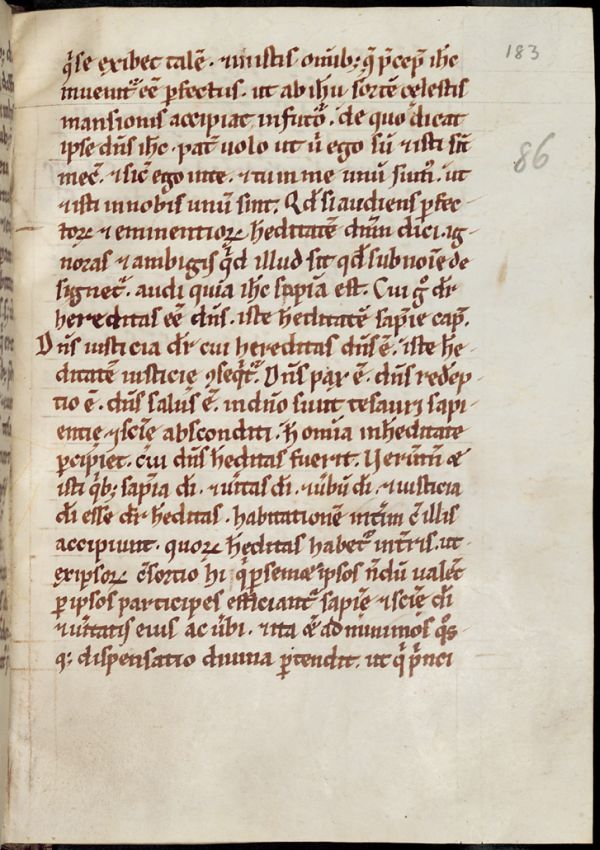 183
86
q͛ se exibet̄ talē. ⁊ iniustis om̄ib; q̄ p̄cep̄ ihc̄
inuenit᷑ eē p̱fectus. ut ab ih̄u sortē celestis
mansionis accipiat in futo᷑. de quo dicat
ipse dn̄s ihc̄. pat̄ uolo ut u͛ ego sū ⁊ isti sīt
mec̄. ⁊ sic̄ ego in te. ⁊ tu in me unū sum᷒. ut
⁊ isti in nobis unū sint. Qđ si audiens p̱fec-
torꝝ ⁊ eminentiorꝝ h̄editatē dn̄m dici. ig-
noras ⁊ ambigis qͥd illud sit qđ sub noīe de
signet᷑. audi quia ihc̄ sapīa est. Cui g͛ dr̄
hereditas eē dn̄s. iste h̄editatē sapīe cap̄.
Dn̄s iusticia dr̄ cui hereditas dn̄s ē. iste he-
ditatē iusticię ꝯseqͥt᷑. Dn̄s pax ē. dn̄s redēp-
tio ē. dn̄s salus ē. in dn̄o sunt tesauri sapi-
entię ⁊ sciē absconditi. h̄ om̄ia in h̄editate
p̱cipiet. cui dn̄s h̄editas fuerit. Uerūtm̄ &
isti qͥb; sapīa dī. ⁊ uītas dī. ⁊ uƀū dī. ⁊ iusticia
dī esse dr̄ h̄editas. habitationē int̄im c̄ illis
accipiunt. quorꝝ h̄editas habet᷑ in t̄ris. ut
ex ipsorꝝ c̄sortio hi qͥ p̱ semet ipsos n̄dū ualēt
p̱ ipsos participes efficiant᷑ sapīe ⁊ sciē dī
⁊ uītatis eius ac uƀi. ⁊ ita & ad minimos qͦs
q; dispensatio diuina p̱tendit. ut qͥ p̄nci